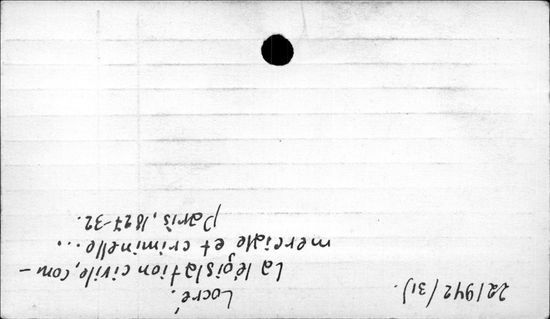 221942/31).
Locré.
La législation civile, com-
merciale et criminelle...
Paris, 1827-32.